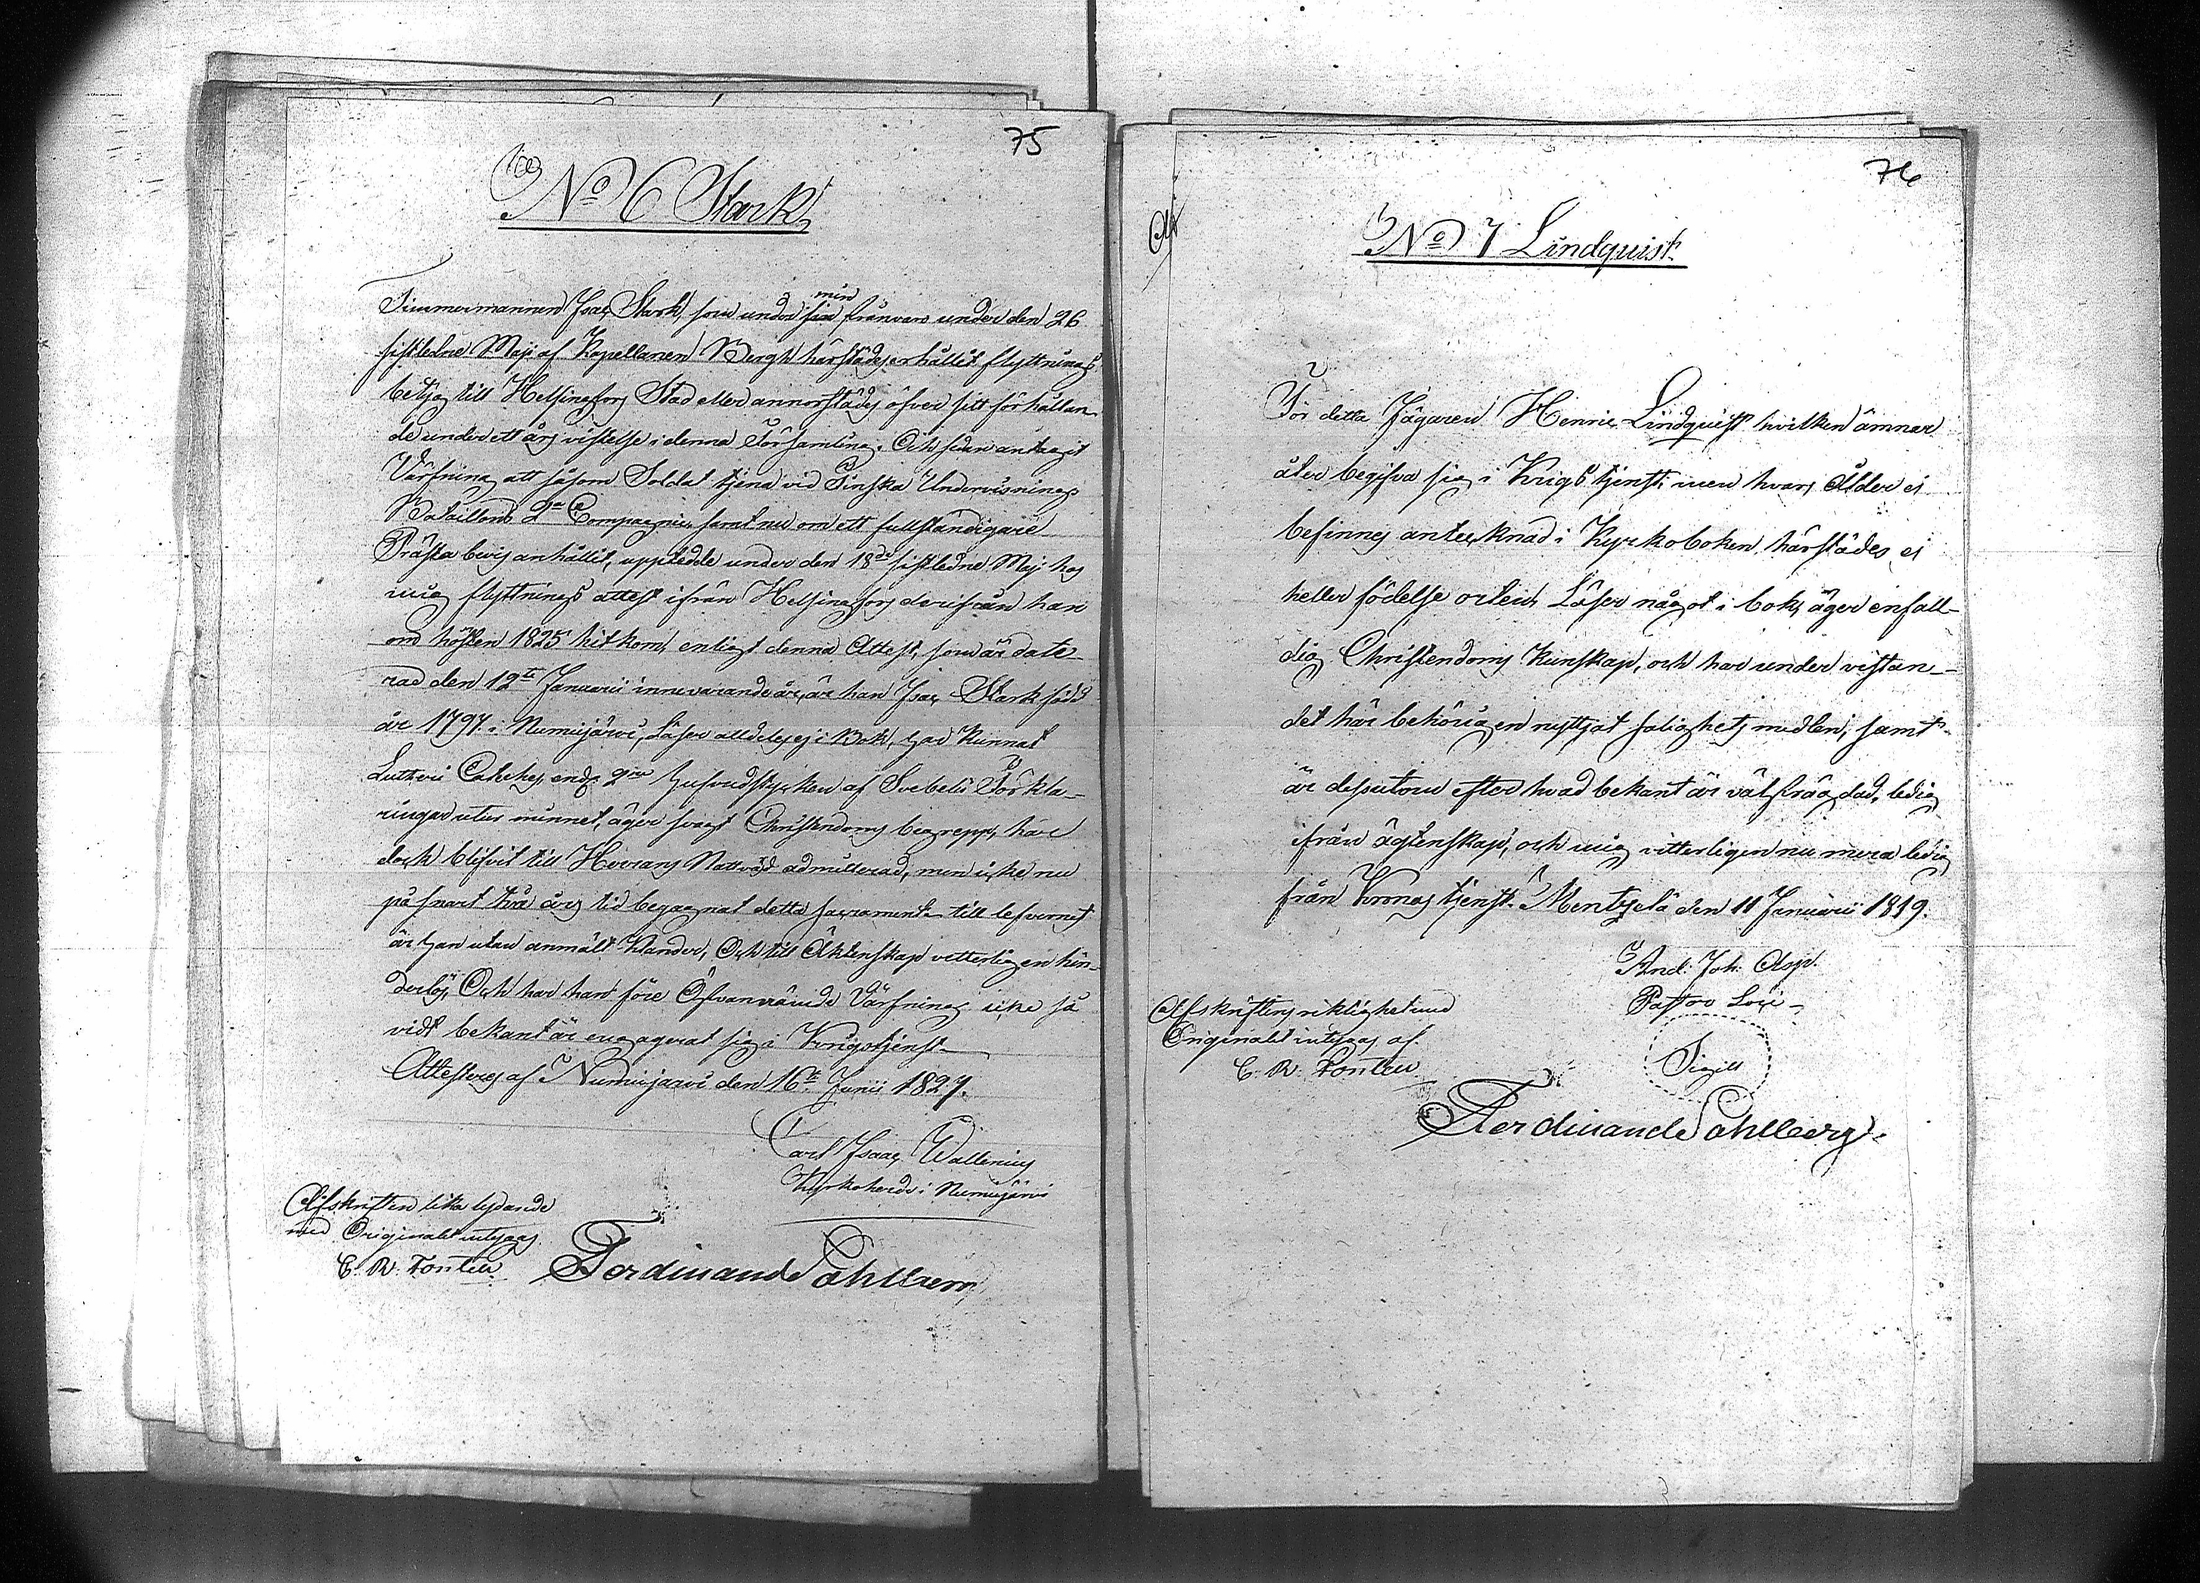 75
No 6 Stark
Timmermannen Isac Stark, som under min frånvaro under den 26
sistledne Maji af Kapellanen Bergh härstädes erhållit flyttnings
betyg till Helsingfors Stad eller annorstädes öfver sitt förhållan
de under ett års vistelse i denna Församling. Och sedan antagit
Värfning att såsom Soldat tjena vid Finska Undervisnings
Bataillons 2a Compagnie, samt nu om ett fullständigare
Prästa bevis anhållit, uppteddde under den 18de sistledne Maj hos
mig flyttnings attest ifrån Helsingfors derifrån han
om hösten 1825 hit kom, enligt denna Attest, som är date-
rad den 12te Januarii innevarande år, är han Isac Stark född
år 1797 i Numijärvi, Läser alldeles ej i Bok, har kunnat
Lutheri Cateches endr 2ne hufvudstycken af Svebelii Förkla-
ringar utur minnet, äger svagt Christendoms begrepp, har
dock blifvit till Herrans Nattvard admitterad, men icke nu
på snart två års tid begagnat detta sacrament till lefvernet
är han utan anmält klander, Och till Äktenskap vitterligen hin-
derlös, Och har han före Ofvannämde Värfning icke så
vidt bekant är engagerat sig i Krigstjenst
Attesteras af Numijärvi den 16te Junii 1827.
Carl Isaac Wallenius
Kyrkoherde i Numijärvi
Afskriften lika lydande
med Originalet intygas
C. R. Fontell
Ferdinand Sahlberg
76
No 7 Lindquist
För detta Jägaren Henric Lindquist hvilken ämnar
åter begifva sig i Krigs tjenst, men hvars ålder ei
befinnes antecknad i Kyrkoboken härstädes, ei
heller födelse orten, Läser något i bok, äger enfall-
dig Christendoms kunskap, och har under vistan-
det här behörigen nyttjat salighets medlen, samt
är dessutom efter hvad bekant är välfrägdad, ledig
ifrån ägtenskap, och mig vitterligen nu mera ledig
från Krono tjenst. Mentzelä den 11 Januarii 1819.
And. Joh. Asp.
Pastor Loci
Sigill
Afskriftens riktighet med
Originalet intygas af
C. R. Fontell
Ferdinand Sahlberg